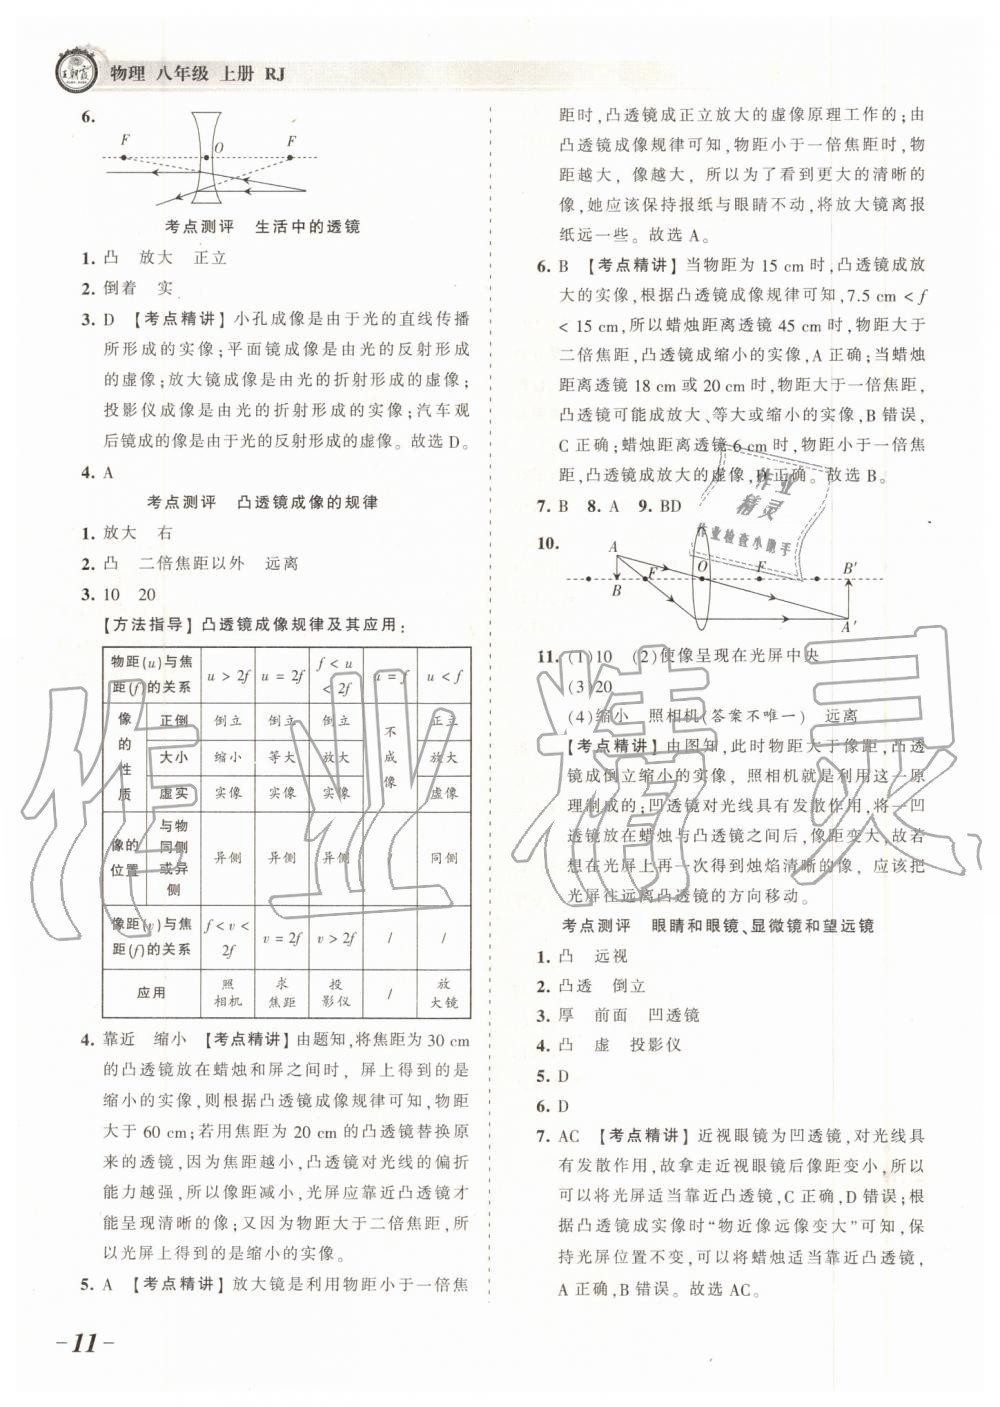 王朝霞
物理 八年级 上册 RJ
6.
F O F
考点测评 生活中的透镜
1. 凸 放大 正立
2. 倒着 实
3. D 【考点精讲】小孔成像是由于光的直线传播
所形成的实像；平面镜成像是由光的反射形成
的虚像；放大镜成像是由光的折射形成的虚像；
投影仪成像是由光的折射形成的实像；汽车观
后镜成的像是由于光的反射形成的虚像。故选 D。
4. A
考点测评 凸透镜成像的规律
1. 放大 右
2. 凸 二倍焦距以外 远离
3. 10 20
【方法指导】凸透镜成像规律及其应用：
物距(u)与焦距(f)的关系 u > 2f u = 2f f < u < 2f u = f u < f
像的性质 正倒 倒立 倒立 倒立 不成像 正立
大小 缩小 等大 放大 放大
虚实 实像 实像 实像 虚像
像的位置 与物同侧或异侧 异侧 异侧 异侧 / 同侧
像距(v)与焦距(f)的关系 f < v < 2f v = 2f v > 2f / /
应用 照相机 求焦距 投影仪 / 放大镜
4. 靠近 缩小 【考点精讲】由题知，将焦距为 30 cm
的凸透镜放在蜡烛和屏之间时，屏上得到的是
缩小的实像，则根据凸透镜成像规律可知，物距
大于 60 cm；若用焦距为 20 cm 的凸透镜替换原
来的透镜，因为焦距越小，凸透镜对光线的偏折
能力越强，所以像距减小，光屏应靠近凸透镜才
能呈现清晰的像；又因为物距大于二倍焦距，所
以光屏上得到的是缩小的实像。
5. A 【考点精讲】放大镜是利用物距小于一倍焦
距时，凸透镜成正立放大的虚像原理工作的；由
凸透镜成像规律可知，物距小于一倍焦距时，物
距越大，像越大，所以为了看到更大的清晰的
像，她应该保持报纸与眼睛不动，将放大镜离报
纸远一些。故选 A。
6. B 【考点精讲】当物距为 15 cm 时，凸透镜成放
大的实像，根据凸透镜成像规律可知，7.5 cm < f
< 15 cm，所以蜡烛距离透镜 45 cm 时，物距大于
二倍焦距，凸透镜成缩小的实像，A 正确；当蜡烛
距离透镜 18 cm 或 20 cm 时，物距大于一倍焦距，
凸透镜可能成放大、等大或缩小的实像，B 错误，
C 正确；蜡烛距离透镜 6 cm 时，物距小于一倍焦
距，凸透镜成放大的虚像，D 正确。故选 B。
7. B 8. A 9. BD
10.
A F O F B′
B A′
11. (1)10 (2)使像呈现在光屏中央
(3)20
(4)缩小 照相机(答案不唯一) 远离
【考点精讲】由图知，此时物距大于像距，凸透
镜成倒立缩小的实像，照相机就是利用这一原
理制成的；凹透镜对光线具有发散作用，将一凹
透镜放在蜡烛与凸透镜之间后，像距变大，故若
想在光屏上再一次得到烛焰清晰的像，应该把
光屏往远离凸透镜的方向移动。
考点测评 眼睛和眼镜、显微镜和望远镜
1. 凸 远视
2. 凸透 倒立
3. 厚 前面 凹透镜
4. 凸 虚 投影仪
5. D
6. D
7. AC 【考点精讲】近视眼镜为凹透镜，对光线具
有发散作用，故拿走近视眼镜后像距变小，所以
可以将光屏适当靠近凸透镜，C 正确，D 错误；根
据凸透镜成实像时“物近像远像变大”可知，保
持光屏位置不变，可以将蜡烛适当靠近凸透镜，
A 正确，B 错误。故选 AC。
作业
精灵
作业检查小助手
作业精灵
－11－